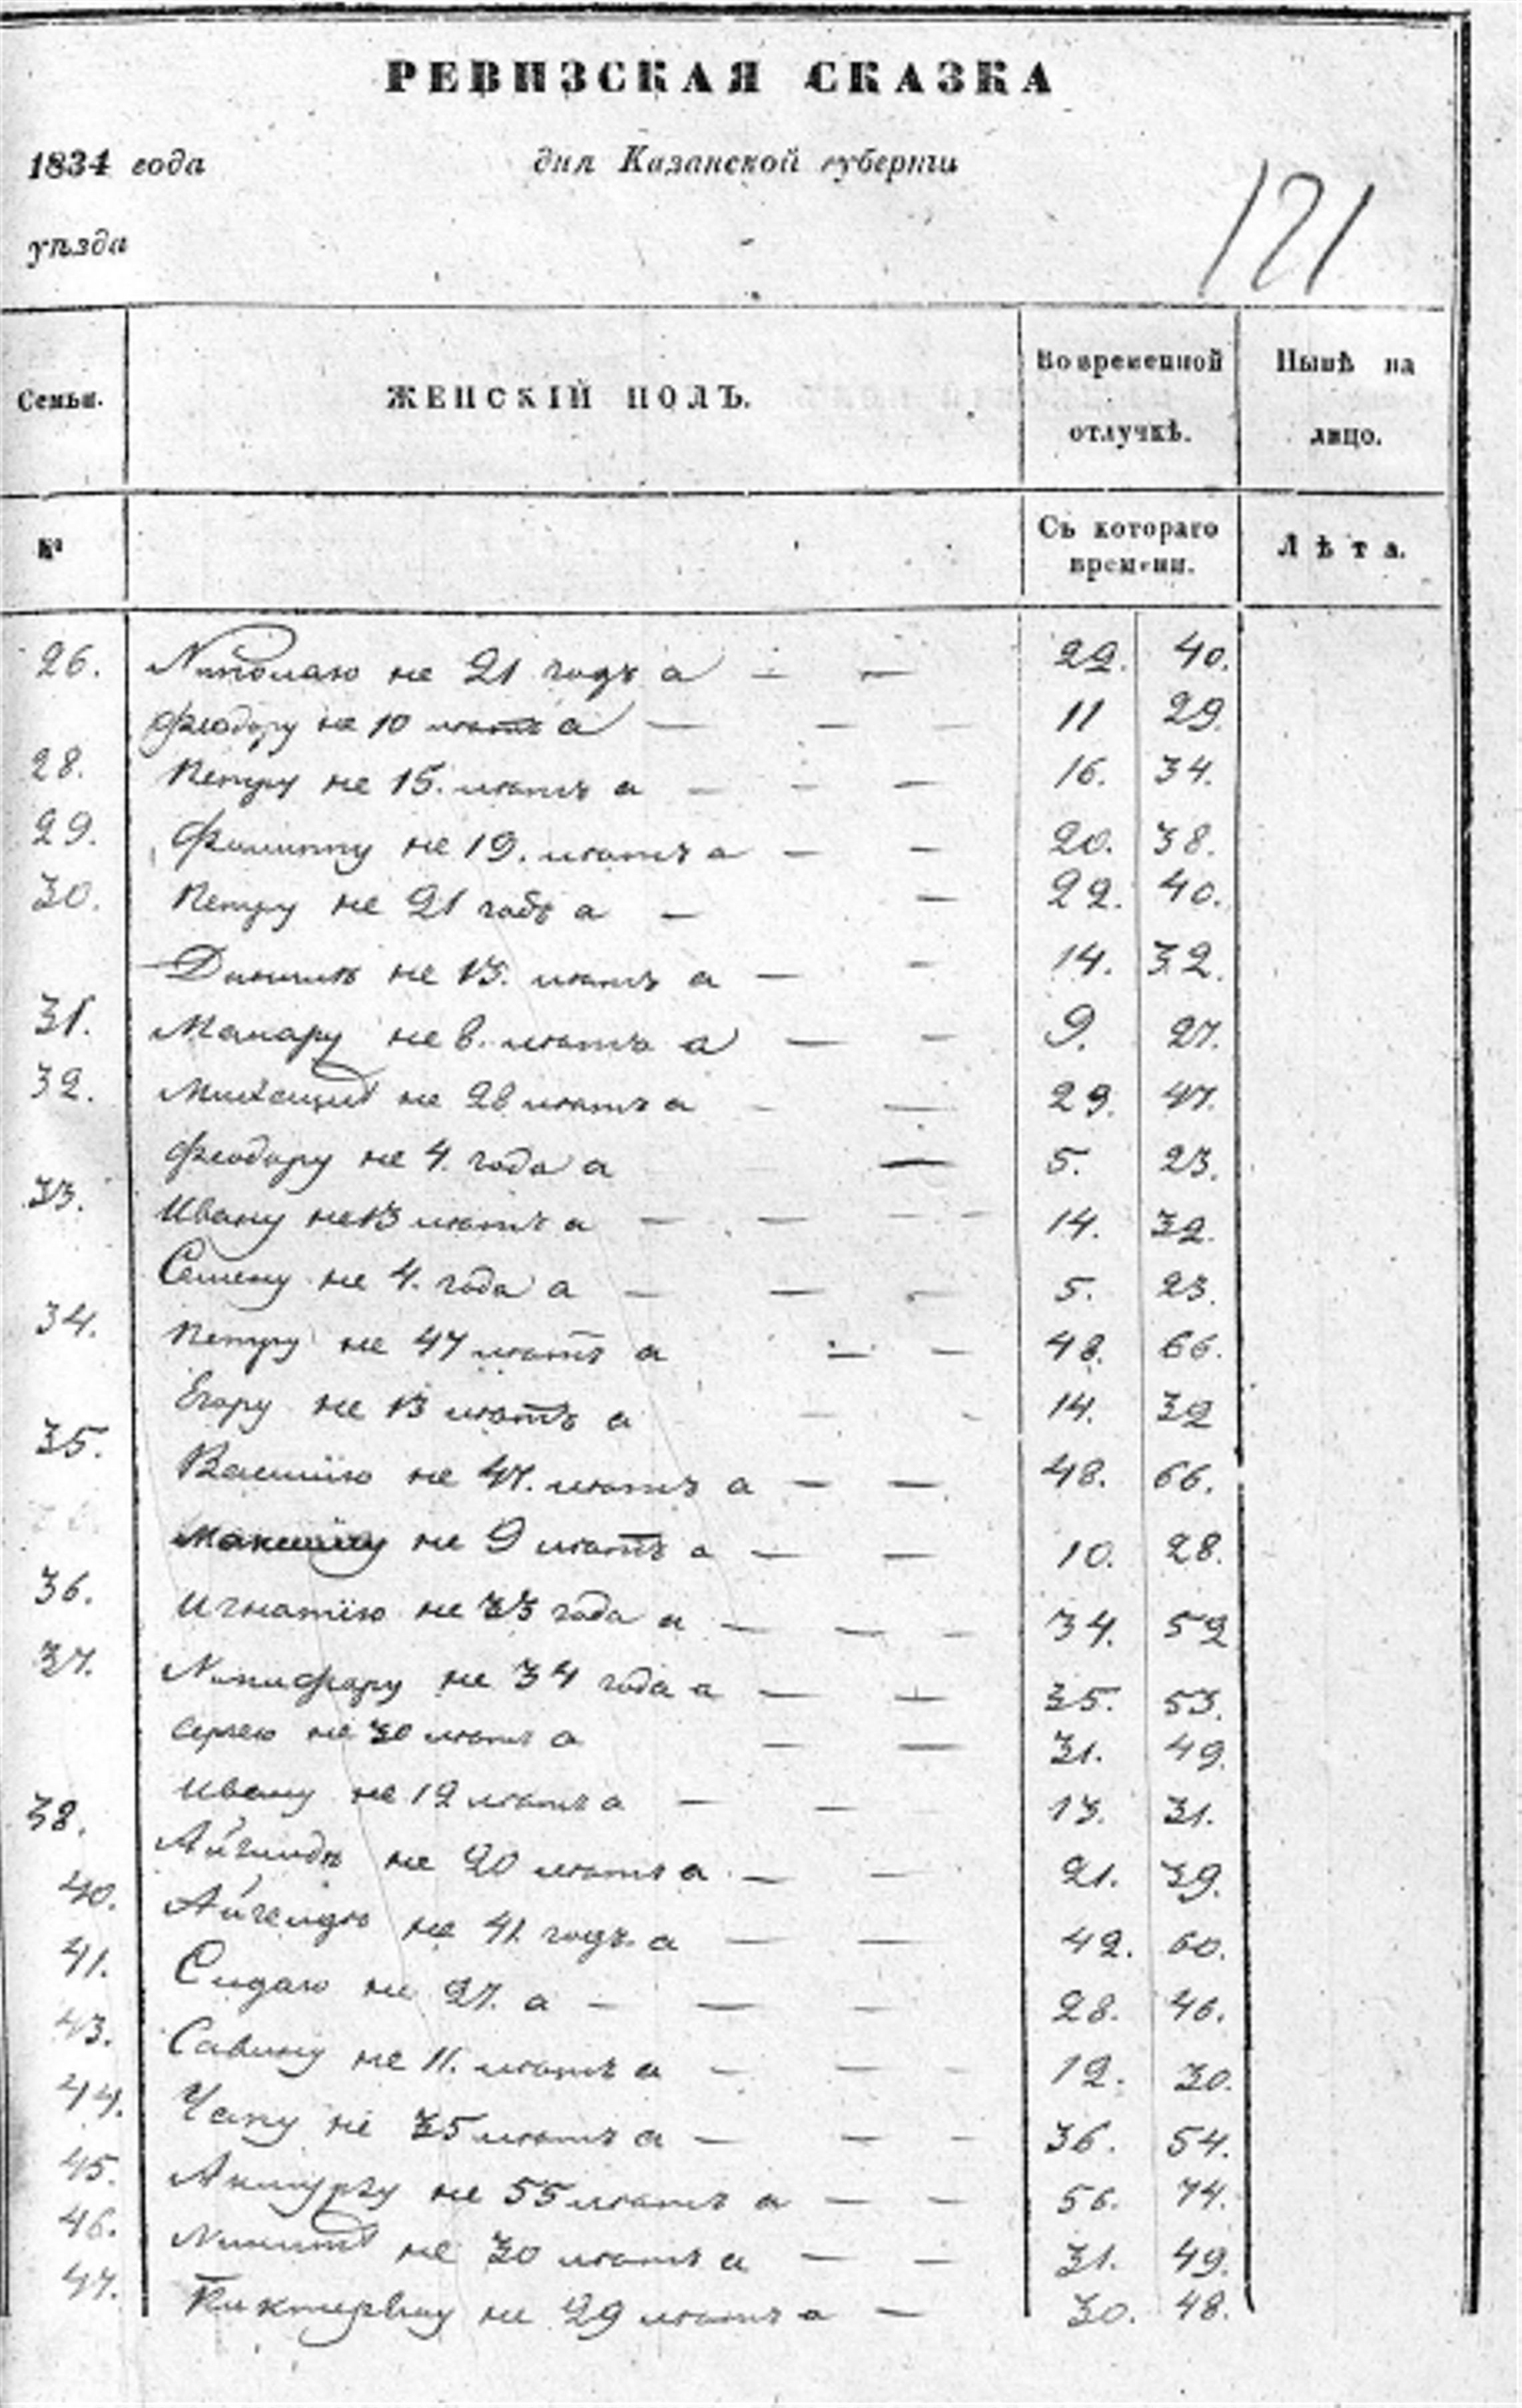 РЕВИЗСКАЯ СКАЗКА
1834 года дня Казанской губернiи
уѣзда
121
Семьи. ЖЕНСКIЙ ПОЛЪ. Во временной отлучкѣ. Нынѣ на лицо.
№ Съ котораго времени. Лѣта.
26. Николаю не 21 годъ а — — 22. 40.
Феодору не 10 лѣтъ а — — — 11 29.
28. Петру не 15. лѣтъ а — — — 16. 34.
29. Филиппу не 19. лѣтъ а — — 20. 38.
30. Петру не 21 годъ а — — 22. 40.
Данилѣ не 13. лѣтъ а — — 14. 32.
31. Макару не 8. лѣтъ а — — 9. 27.
32. не 28 лѣтъ а — — 29. 47.
Феодору не 4. года а — 5. 23.
33. Ивану не 13 лѣтъ а — — — 14. 32.
Семену не 4. года а — — — 5. 23.
34. Петру не 47 лѣтъ а — — 48. 66.
Егору не 13 лѣтъ а — - 14. 32
35. Василiю не 47. лѣтъ а — — 48. 66.
Максиму не 9 лѣтъ а — — 10. 28.
36. Игнатiю не 33 года а — — — 34. 52
37. Никифору не 34 года а — — 35. 53.
Сергею не 30 лѣтъ а — — 31. 49.
Ивану не 12 лѣтъ а — — 13. 31.
38. не 20 лѣтъ а — — 21. 39.
40. не 41. годъ а — — 42. 60.
41. Сидаю не 27. а — — — 28. 46.
43. Савину не 11. лѣтъ а — — — 12. 30.
44. не 35 лѣтъ а — — — 36. 54.
45. не 55 лѣтъ а — — 56. 74.
46. Никитѣ не 30 лѣтъ а — — 31. 49.
47. не 29 лѣтъ а — 30. 48.